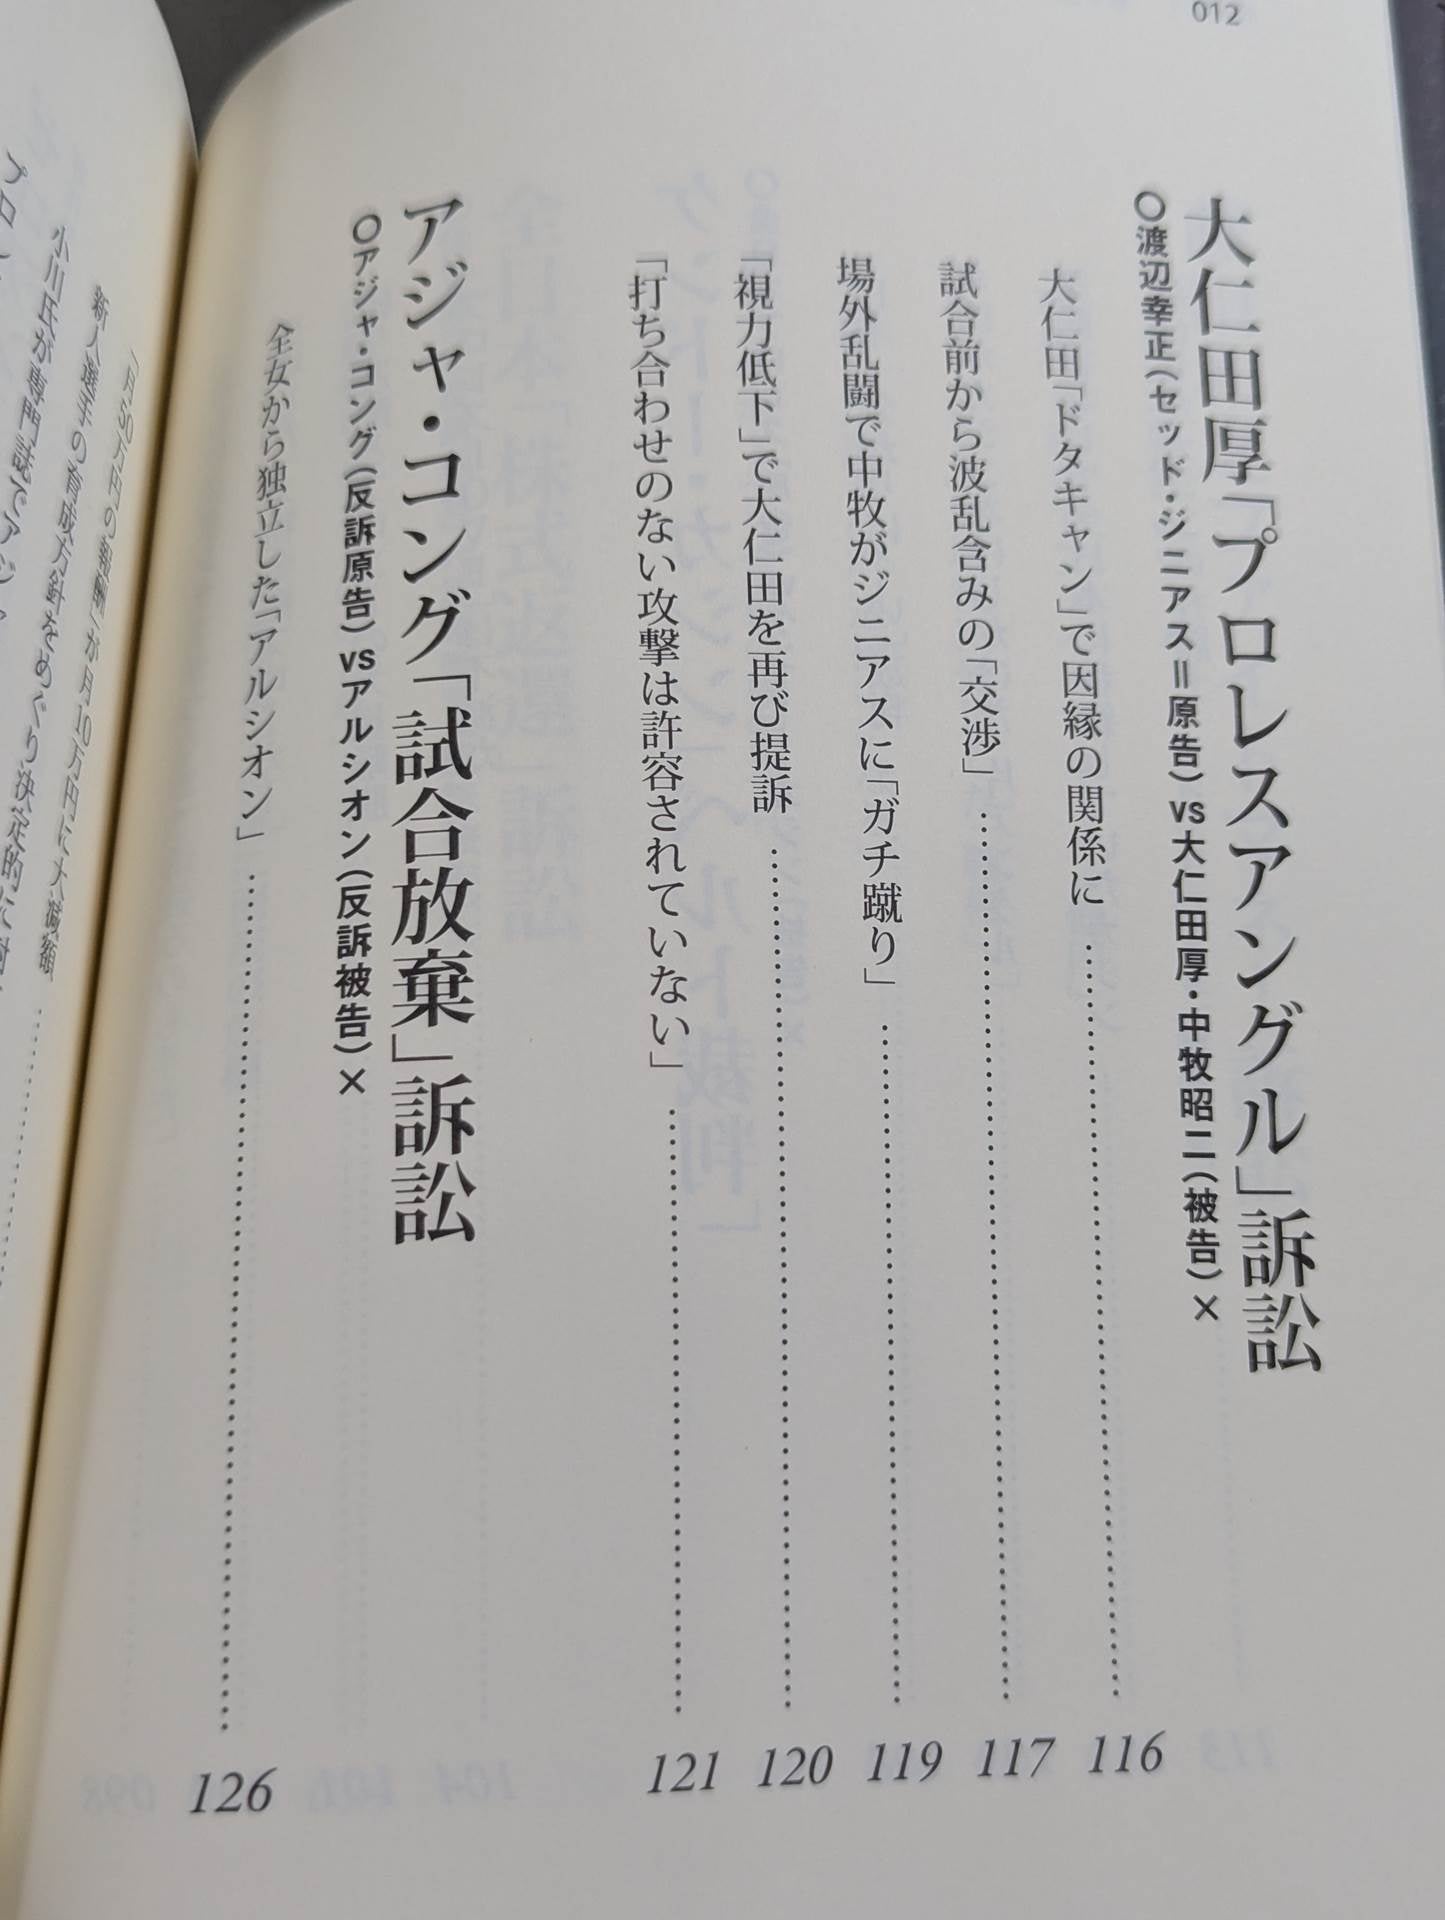 012
大仁田厚「プロレスアングル」訴訟
○渡辺幸正（セッド・ジニアス＝原告）vs大仁田厚・中牧昭二（被告）×
大仁田「ドタキャン」で因縁の関係に……116
試合前から波乱含みの「交渉」……117
場外乱闘で中牧がジニアスに「ガチ蹴り」……119
「視力低下」で大仁田を再び提訴……120
「打ち合わせのない攻撃は許容されていない」……121
アジャ・コング「試合放棄」訴訟
○アジャ・コング（反訴原告）vsアルシオン（反訴被告）×
全女から独立した「アルシオン」……126
1日50万円の報酬が月10万円に大減額……
新人選手の育成方針をめぐり決定的に
小川氏が専門誌でアジャ